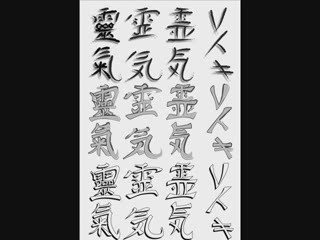 靈氣
霊気
霊気
レイキ
靈氣
霊気
霊気
レイキ
靈氣
霊気
霊気
レイキ